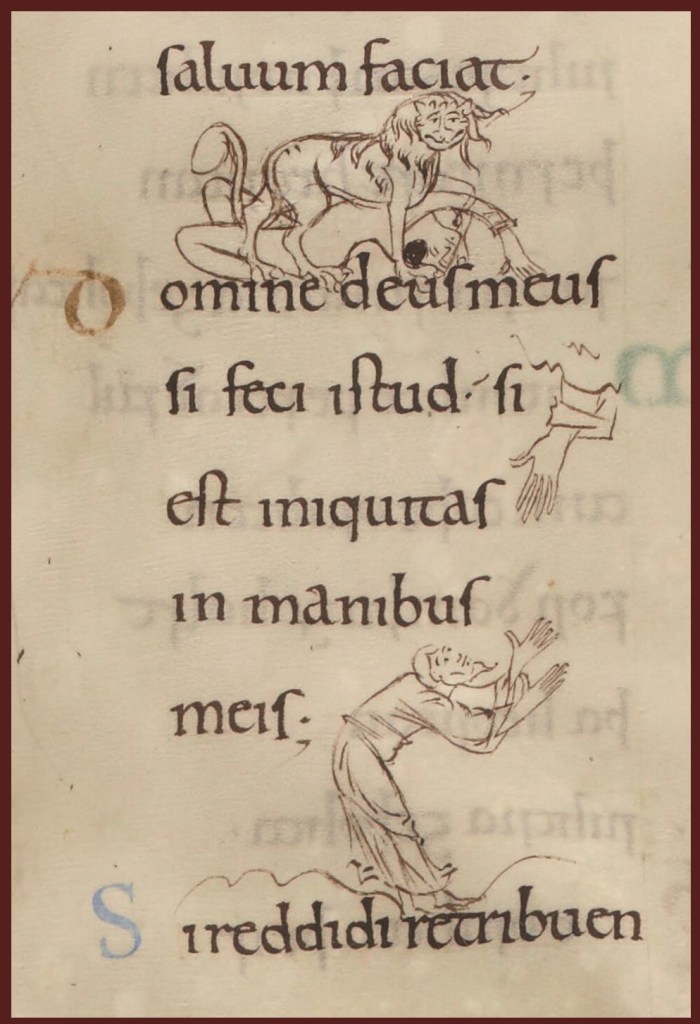 saluum faciat.
Domine deus meus
si feci istud. si
est iniquitas
in manibus
meis;
Si reddidi retribuen